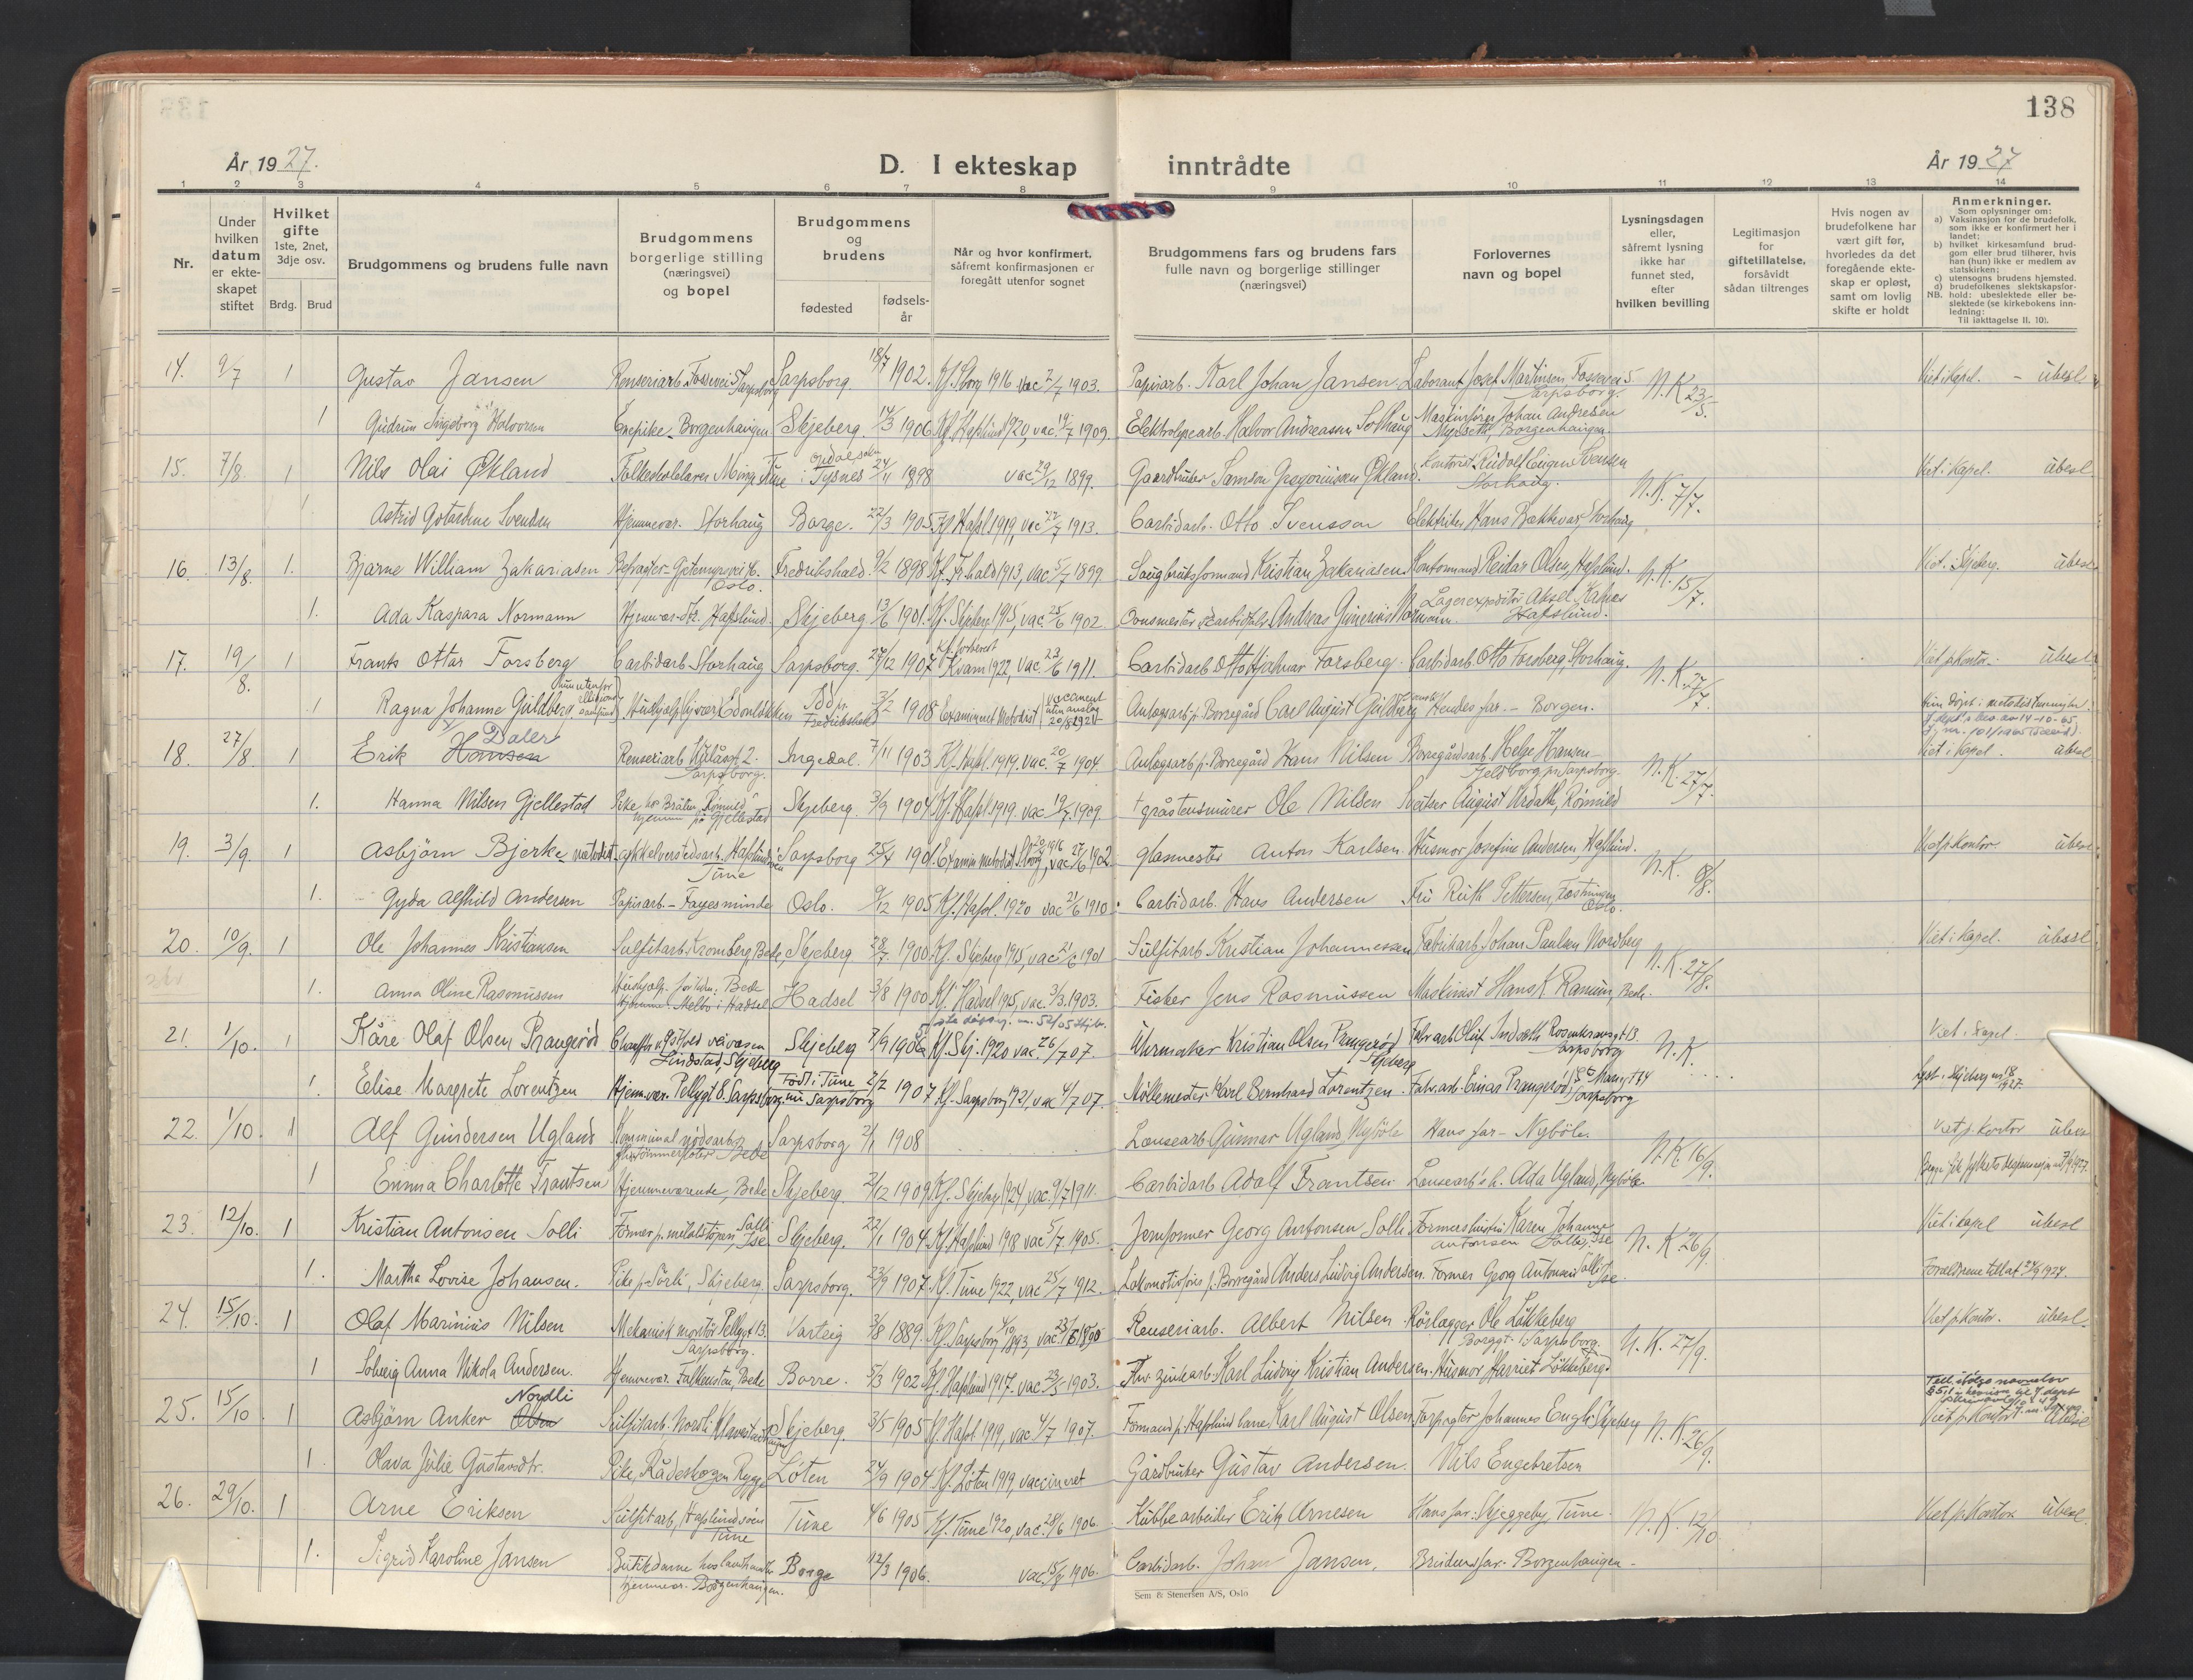 138
År 1927.
D. I ekteskap inntrådte
År 1927
1 2 3 4 5 6 7 8 9 10 11 12 13 14
Nr.
Under hvilken datum er ekteskapet stiftet
Hvilket gifte 1ste, 2net, 3dje osv.
Brdg. Brud
Brudgommens og brudens fulle navn
Brudgommens borgerlige stilling (næringsvei) og bopel
Brudgommens og brudens
fødested
fødselsår
Når og hvor konfirmert, såfremt konfirmasjonen er foregått utenfor sognet
Brudgommens fars og brudens fars fulle navn og borgerlige stillinger (næringsvei)
Forlovernes navn og bopel
Lysningsdagen eller, såfremt lysning ikke har funnet sted, efter hvilken bevilling
Legitimasjon for giftetillatelse, forsåvidt sådan tiltrenges
Hvis nogen av brudefolkene har vært gift før, hvorledes da det foregående ekteskap er opløst, samt om lovlig skifte er holdt
Anmerkninger.
Som oplysninger om:
a) Vaksinasjon for de brudefolk, som ikke er konfirmert her i landet;
b) hvilket kirkesamfund brudgom eller brud tilhører, hvis han (hun) ikke er medlem av statskirken;
c) utensogns brudens hjemsted.
d) brudefolkenes slektskapsforhold: ubeslektede eller beslektede (se kirkebokens innledning:
NB.
Til iakttagelse II. 10).
14. 9/7 1 Gustav Jansen Renseriarb. Fossevei 5 Sarpsborg Sarpsborg. 18/7 1902. Kf. Sborg 1916 vac 2/7 1903. Papirarb. Karl Johan Jansen. Laborant Josef Martinsen Fossevei 5 Sarpsborg. N.K 23/5. Viet i Kapel. - übesl
1 Gudrun Ingeborg Halvorsen Enepike - Borgenhaugen Skjeberg. 14/3 1906 Kf. Hafslund 1920, vac. 19/7 1909. Elektrolysearb. Halvor Andreassen Solhaug Maskinfører Johan Andresen Myrseth, Borgenhaugen.
15. 7/8 1 Nils Olai Økland Tysnes 24/11 1898 vac 29/12 1899. Gaardbruker Samson Gregoriussen Økland. Kontorist Rudolf Eugen Svensen Storhaug. N.K. 7/7. Viet i Kapel. übesl
1 Astrid Svendsen Hjemmevær. Storhaug Borge. 22/3 1905. Kf. Hafsl 1919, vac 22/7 1913. Carbidarb. Otto Svensson Elektriker Hans Bækkevar, Storhaug
16. 13/8. 1. Bjarne William Zakariasen Oslo. Fredrikshald. 9/2 1898 Kf. Fr.hald 1913, vac 5/7 1899 Saugbruksformand Kristian Zakariasen. Kontormand Reidar Olsen, Hafslund. N.K. 15/7. Viet i Skjeberg. übesl
1. Ada Kaspara Normann Hafslund. Skjeberg 13/6 1901. Kf. Skjeberg 1915, vac. 25/6 1902. Ovnsmester Andreas Normann. Lagerexpeditör Aksel Hafslund.
17. 19/8. 1 Frants Ottar Forsberg Carbidarb Storhaug Sarpsborg. 27/12 1907 Kf. Kvam 1922, vac. 23/6 1911. Carbidarb. Otto Hjalmar Forsberg. Carbidarb. Otto Forsberg, Storhaug. N.K. 27/7. Viet p. Kontor. übesl
1 Ragna Johanne Guldberg Idd pr. Fredrikshald 3/2 1908 Examineret Metodist vaccineret Anlægsarb. p. Borregård Carl August Guldberg Hendes far. - Borgen. Hun døpt i metodistmenighet.
18. 27/8. 1 Erik Hansen Daler Renseriarb. 2. Sarpsborg. Ingedal. 7/11 1903 Kf. Hafsl. 1919. vac. 20/7 1904. Anlægsarb. p. Borregård Hans Nilsen Borregårdsarb. Helge Hansen Sarpsborg. N.K. 27/7. Viet i Kapel. übesl
1. Hanna Nilsen Gjellestad Skjeberg. 3/9 1904 Kf. Hafsl 1919. vac 19/7. 1909. † gråstensmurer Ole Nilsen Sveitser August
19. 3/9 1 Asbjørn Bjerke metodist Sarpsborg 25/4 1901 Examin metodist Glasmester Anton Karlsen Husmor Josefine Andersen, Hafslund. N.K. 8/8. Viet p Kontor. übesl
1. Gyda Alfhild Andersen Papirarb - Fayesminde Oslo. 9/12 1905 Kf. Hafsl. 1920 vac 21/6 1910. Carbidarb. Hans Andersen Fru Ruth Pettersen, Oslo.
20. 10/9. 1 Ole Johannes Kristiansen Sulfitarb. Kronberg, Bede, Skjeberg 28/7 1900. Kf. Skjeberg 1915, vac. 21/6 1901 Sulfitarb. Kristian Johannessen Fabrikarb. Johan Paulsen Nordberg N.K. 27/8. Viet i Kapel. übesl
1. Anna Oline Rasmussen Melbo i Hadsel Hadsel 3/8 1900 Kf. Hadsel 1915, vac. 3/3. 1903. Fisker Jens Rasmussen Maskinist Hans K Ramum, Bede.
21. 1/10. 1 Kåre Olaf Olsen Prangerød Lindstad, Skjeberg Skjeberg 7/9 1906 Kf. Skj. 1920 vac. 26/7 07. Uhrmaker Kristian Olsen Prangerød Skjeberg Fabr arb Oluf Rosenkransgt 13. Sarpsborg N.K. Viet i Kapel.
1. Elise Margrete Lorentzen Hjem.vær. Pellygt 8. Sarpsborg Født i Tune nu Sarpsborg 2/2 1907 Kf. Sarpsborg 1921 vac 4/7 07. Møllemester Karl Bernhard Lorentzen. Fabr. arb. Einar Prangerød Sarpsborg Lyst i Skjeberg 1927.
22. 1/10. 1 Alf Gundersen Ugland Kommunal nødsarb. Bede Sarpsborg 2/1 1908 Lænsearb. Gunnar Ugland, Nybøle Hans far - Nybøle. N.K. 16/9. Viet p. Kontor übesl
1 Emma Charlotte Frantsen Hjemmeværende, Bede Skjeberg. 2/12 1909 Kf. Skjeberg 1924, vac. 9/7 1911. Carbidarb Adolf Frantsen Lænsearb's h. Ada Ugland, Nybøle
23. 12/10. 1 Kristian Antonsen Solli Former p. metalstøperi, Solli Ise Skjeberg. 22/1 1904 Kf. Hafslund 1918 vac 5/7 1905. Jernformer Georg Antonsen Solli Formershustru Karen Johanne Antonsen Solli, Ise N.K. 26/9. Viet i kapel übesl
1. Martha Lovise Johansen. Pike p. Sørli, Skjeberg. Sarpsborg. 23/9 1907 Kf. Tune 1922, vac 25/7 1912. Lokomotivfører p. Borregård Anders Ludvig Andersen. Former Georg Antonsen Solli Ise.
24. 15/10. 1 Olaf Marinius Nilsen Mekanisk montør Pellygt 13. Sarpsborg. Varteig 3/8 1889. Kf. Sarpsborg Renseriarb. Albert Nilsen Rørlægger Ole Løkkeberg Borggt. Sarpsborg. N.K. 27/9. Viet p. Kontor. übesl.
1 Solveig Anna Nikola Andersen. Hjemmevær. Falkensten, Bede Borre. 5/3 1902 Kf. Hafslund 1917. vac 23/5 1903. zinkarb. Karl Ludvig Kristian Andersen. Husmor Harriet Løkkeberg
25. 15/10 1 Asbjørn Anker Olsen Nordli Sulfitarb. Nordli Skjeberg. 3/5 1905 Kf. Hafsl. 1919, vac 4/7 1907. Formand p. Hafslund Karl August Olsen Forpagter Johannes Engh Skjeberg N.K. 26/9. Viet p. Kontor übesl
1. Olava Julie Gustavsdtr. Pike, Rådeskogen Rygge Løten 24/9 1904 Kf. Løten 1919, vaccineret Gårdbruker Gustav Andersen. Nils Engebretsen
26. 29/10. 1 Arne Eriksen Sulfitarb, Hafslundsøen Tune Tune 4/6 1905 Kf. Tune 1920, vac. 28/6 1906. Kubbearbeider Erik Arnesen Hans far. Skjeggeby, Tune. N.K. 12/10 Viet p. Kontor übesl
1. Sigrid Karoline Jansen Borgenhaugen. Borge 12/3 1906. vac. 15/8 1906. Carbidarb. Johan Jansen, Brudens far. Borgenhaugen
Sem & Stenersen A/S, Oslo